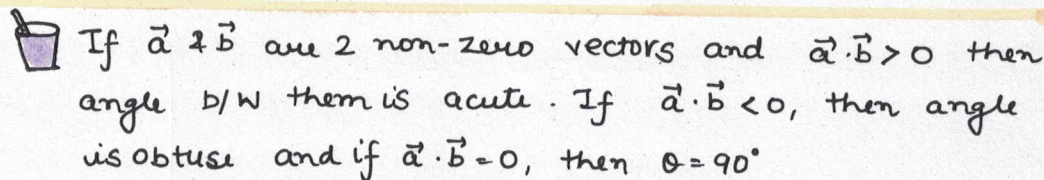 If a⃗ & b⃗ are 2 non-zero vectors and a⃗·b⃗ > 0 then
angle b/w them is acute. If a⃗·b⃗ < 0, then angle
is obtuse and if a⃗·b⃗ = 0, then θ = 90°